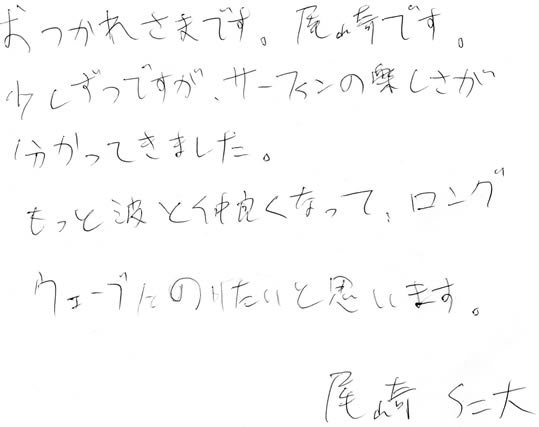 おつかれさまです。尾崎です。
少しずつですが、サーフィンの楽しさが
分かってきました。
もっと波と仲良くなって、ロング
ウェーブにのりたいと思います。
尾崎 仁大